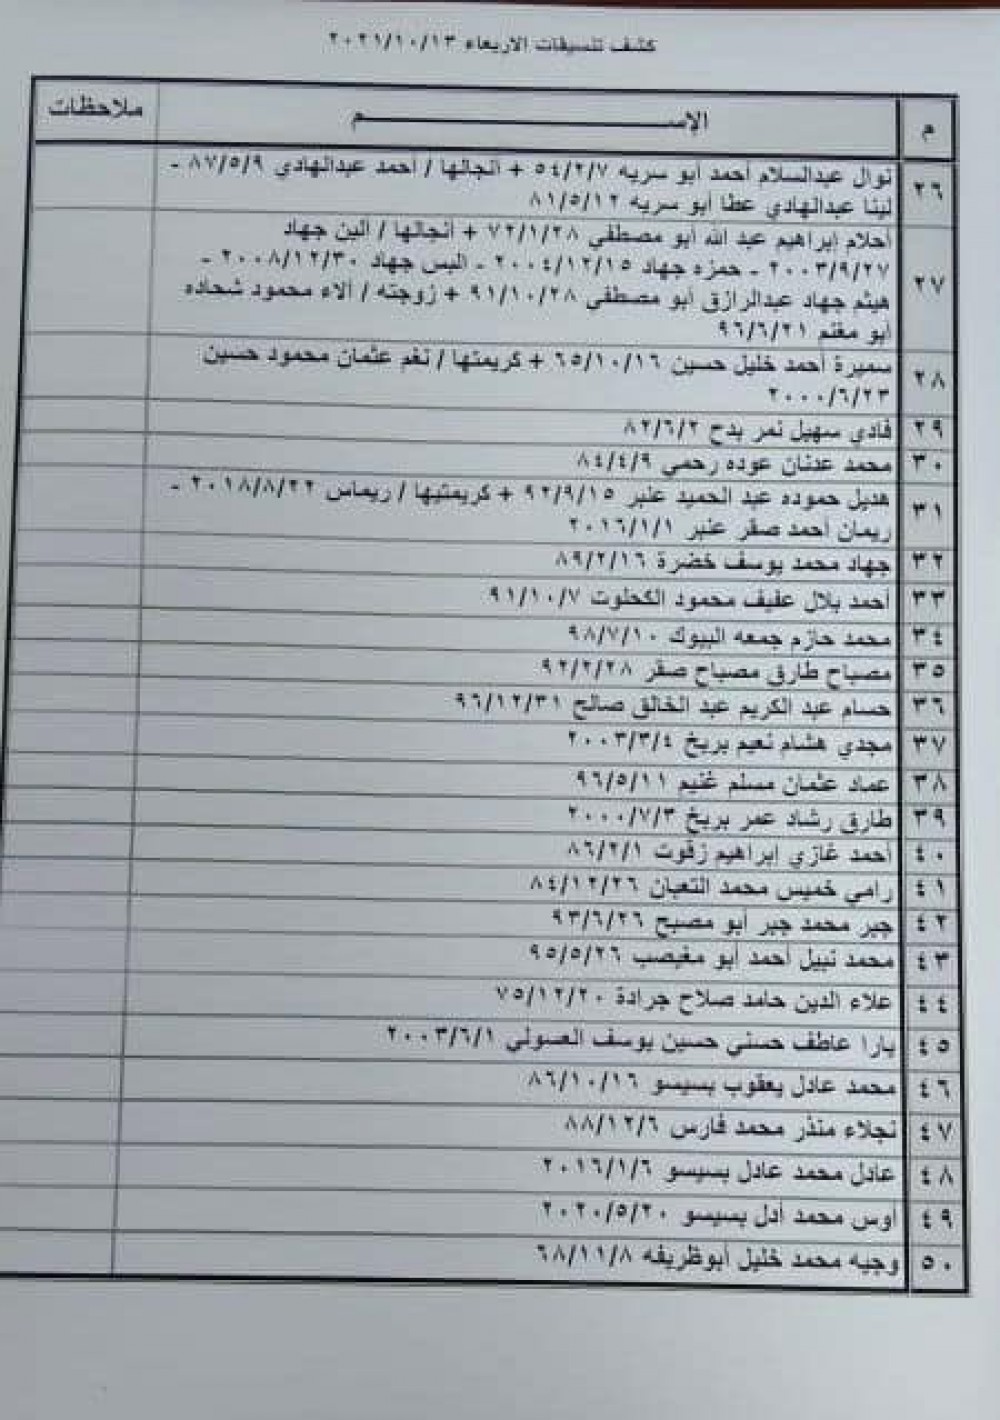 كشف تنسيقات الاربعاء ٢٠٢١/١٠/١٣
م الإســـــــــــم ملاحظات
٢٦ نوال عبدالسلام أحمد أبو سريه ٥٤/٢/٧ + أنجالها / أحمد عبدالهادي ٨٧/٥/٩ -
لينا عبدالهادي عطا أبو سريه ٨١/٥/١٢
٢٧ أحلام إبراهيم عبد الله أبو مصطفى ٧٢/١/٢٨ + أنجالها / ألين جهاد
٢٠٠٣/٩/٢٧ - حمزه جهاد ٢٠٠٤/١٢/١٥ - اليس جهاد ٢٠٠٨/١٢/٣٠ -
هيثم جهاد عبدالرازق أبو مصطفى ٩١/١٠/٢٨ + زوجته / ألاء محمود شحاده
أبو مغنم ٩٦/٦/٢١
٢٨ سميرة أحمد خليل حسين ٦٥/١٠/١٦ + كريمتها / نغم عثمان محمود حسين
٢٠٠٠/٦/٢٣
٢٩ فادي سهيل نمر بدح ٨٢/٦/٢
٣٠ محمد عدنان عوده رحمي ٨٤/٤/٩
٣١ هديل حموده عبد الحميد عنبر ٩٢/٩/١٥ + كريمتيها / ريماس ٢٠١٨/٨/٢٢ -
ريمان أحمد صقر عنبر ٢٠١٦/١/١
٣٢ جهاد محمد يوسف خضرة ٨٩/٢/١٦
٣٣ أحمد بلال عفيف محمود الكحلوت ٩١/١٠/٧
٣٤ محمد حازم جمعه البيوك ٩٨/٧/١٠
٣٥ مصباح طارق مصباح صقر ٩٢/٢/٢٨
٣٦ حسام عبد الكريم عبد الخالق صالح ٩٦/١٢/٣١
٣٧ مجدي هشام نعيم بريخ ٢٠٠٣/٣/٤
٣٨ عماد عثمان مسلم غنيم ٩٦/٥/١١
٣٩ طارق رشاد عمر بريخ ٢٠٠٠/٧/٣
٤٠ أحمد غازي إبراهيم زقوت ٨٦/٢/١
٤١ رامي خميس محمد التعبان ٨٤/١٢/٢٦
٤٢ جبر محمد جبر أبو مصبح ٩٣/٦/٢٦
٤٣ محمد نبيل أحمد أبو مغيصب ٩٥/٥/٢٦
٤٤ علاء الدين حامد صلاح جرادة ٧٥/١٢/٢٠
٤٥ يارا عاطف حسني حسين يوسف العسولي ٢٠٠٣/٦/١
٤٦ محمد عادل يعقوب بسيسو ٨٦/١٠/١٦
٤٧ نجلاء منذر محمد فارس ٨٨/١٢/٦
٤٨ عادل محمد عادل بسيسو ٢٠١٦/١/٦
٤٩ أوس محمد أدل بسيسو ٢٠٢٠/٥/٢٠
٥٠ وجيه محمد خليل أبوظريفه ٦٨/١١/٨